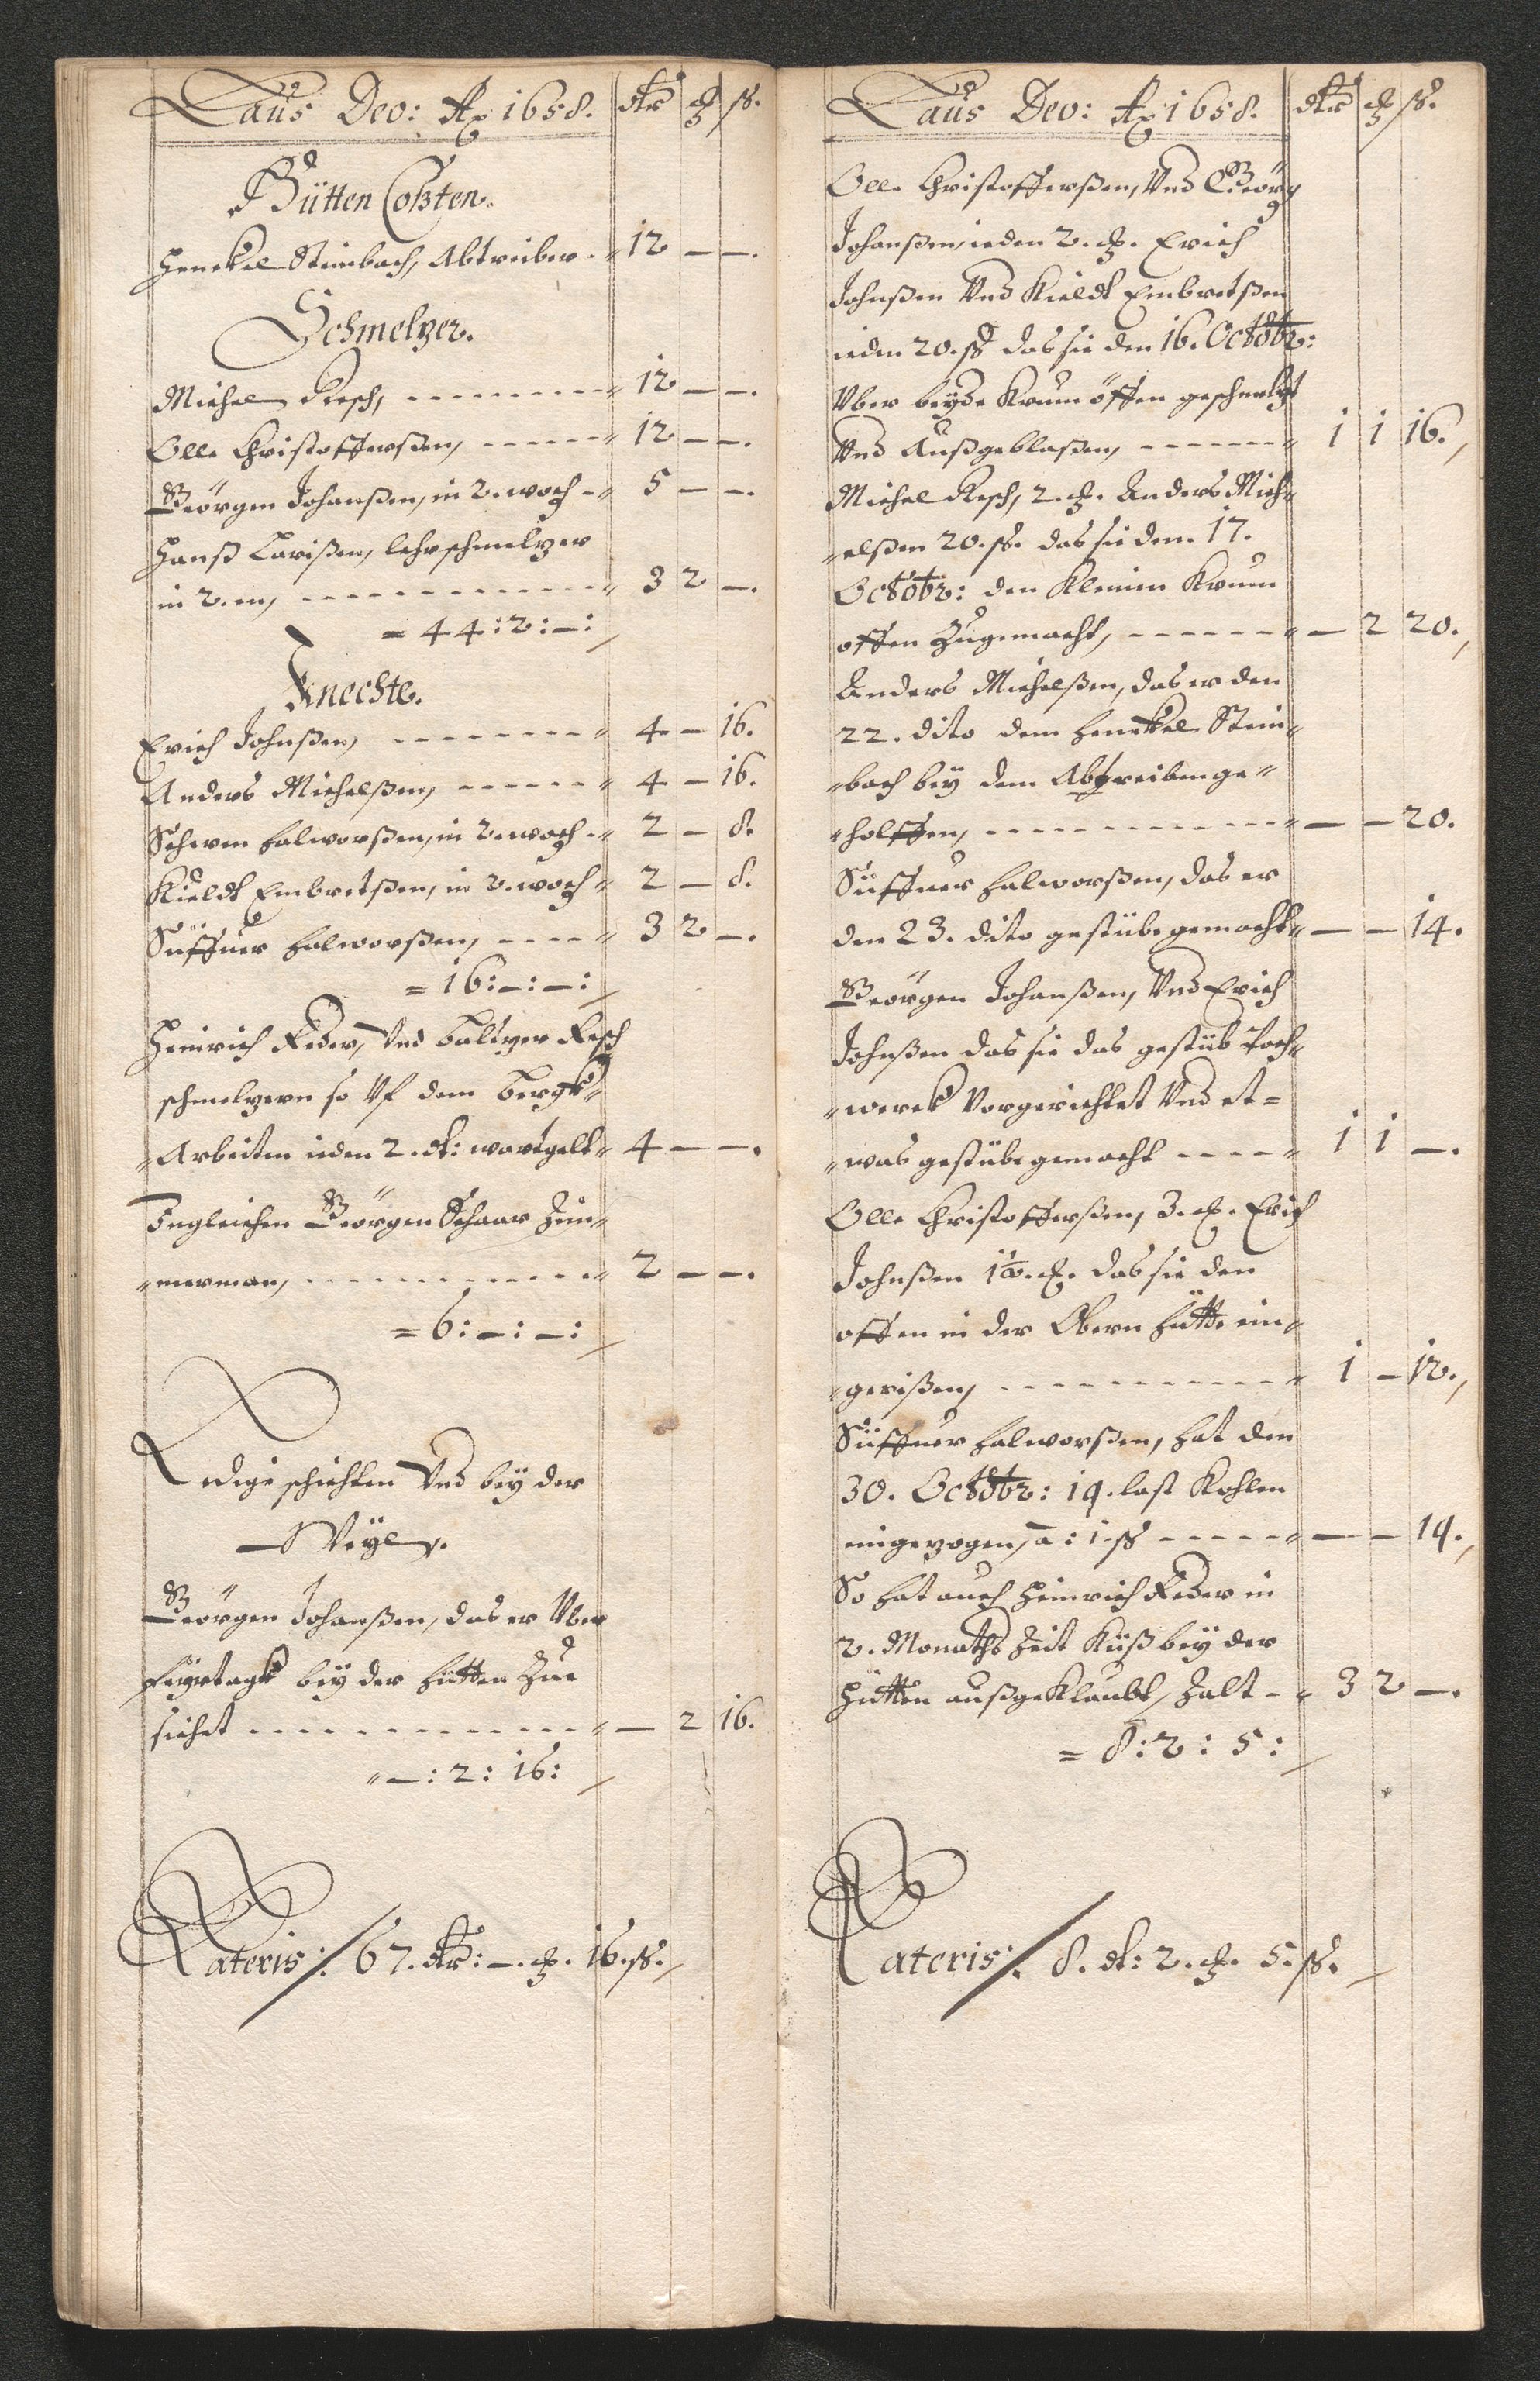 Laus Deo: Ao 1658. dlr ort ß.
Hütten Costen.
Henckel Steinbach, Abtreiber. 12 — —.
Schmelzer.
Michel Resch, 12 — —.
Olle Christofferßen, 12 — —.
Geörgen Johanßen, in 2. woch 5 — —.
Hanß Larißen, lehrschmelzer
in 2. en, 3 2 —.
= 44:2:—:
Knechte.
Erich Johnßen, 4 — 16.
Anders Michelßen, 4 — 16.
Schwen Halworßen, in 2. woch 2 — 8.
Kieldt Embretßen, in 2. woch 2 — 8.
Süffuer Halworßen, 3 2 —.
= 16:—:—:
Heinrich Reder, Vnd Baltzer Resch
schmelzern so Vf dem Bergk=
=Arbeiten ieden 2. dl: wartgelt 4 — —.
Ingleichen Geörgen Schaar Zim=
=merman, 2 — —.
= 6:—:—:
Ledige schichten Vnd bey der
Weyl.
Geörgen Johanßen, das er Vber
feyrtagk bey der Hütten Zue
siehet — 2 16.
—:2:16:
Lateris: 67. dlr: —. ort. 16. ß.
Laus Deo: Ao 1658. dlr ort ß.
Olle Christofferßen, Vnd Geörg
Johanßen, ieden 2. ort. Erich
Johnßen Vnd Kieldt Embretßen
ieden 20. ß das sie den 16. Octobr:
Vber beyde Krum öffen geschmeltzt
Vnd Außgeblaßen, 1 1 16.
Michel Resch, 2. ort. Anders Mich=
=elßen 20. ß. das sie den 17.
Octobr: den Kleinen Krum
offen Zugemacht, — 2 20.
Anders Michelßen, das er den
22. dito dem Henckel Stein=
=bach bey dem Abtreiben ge=
=holffen, — — 20.
Süffuer Halworßen, das er
den 23. dito gestübe gemacht — — 14.
Geörgen Johanßen, Vnd Erich
Johnßen das sie das gestüb Poch=
=werck Vorgerichtet Vnd et=
=was gestübe gemacht 1 1 —.
Olle Christofferßen, 3. ort. Erich
Johnßen 1½. ort. das sie den
offen in der Obern Hütte ein=
=gerißen, 1 — 12.
Süffuer Halworßen, hat den
30. Octobr: 19. last Kohlen
eingezogen, a: 1. ß — — 19.
So hat auch Heinrich Reder in
2. Monaths Zeit Küß bey der
Hütten außgeklaubt, Zalt 3 2 —.
= 8:2:5:
Lateris: 8. dl: 2. ort. 5. ß.